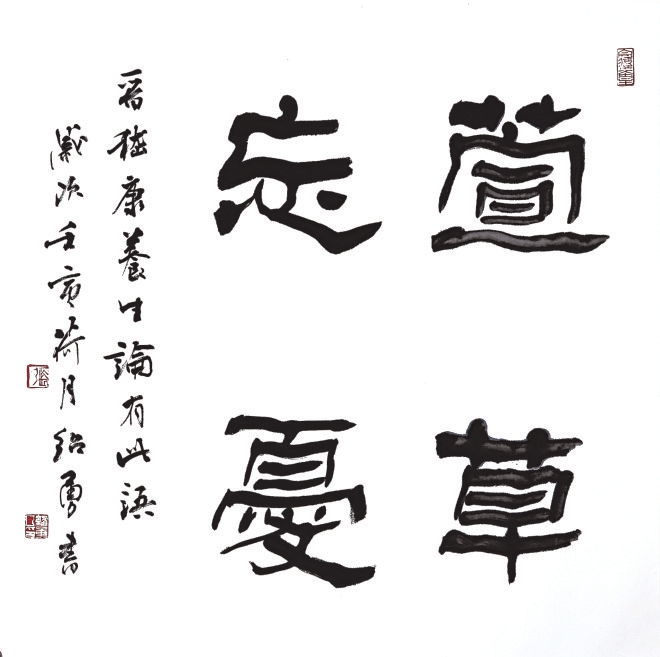 萱草
忘憂
晋嵇康養生論有此語
歲次壬寅荷月紹勇書